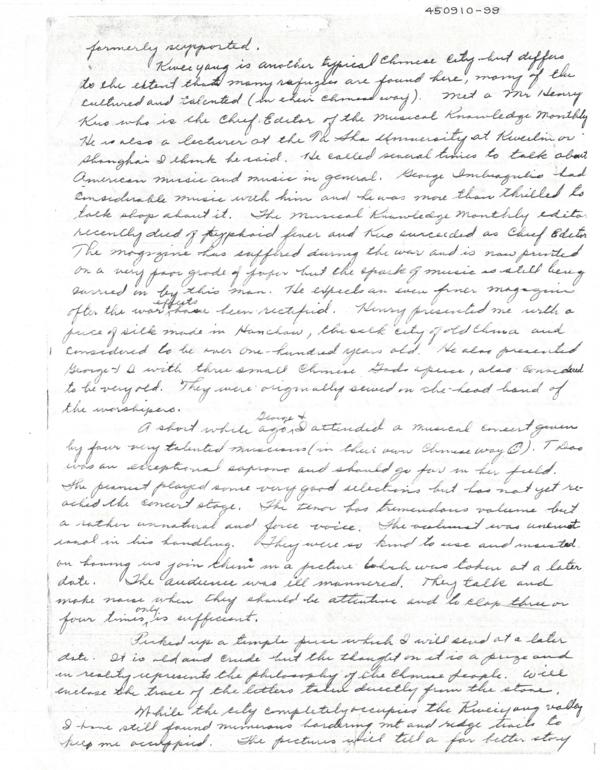 450910-99
formerly supported.
Kweiyang is another typical Chinese City but differs
to the extent that many refugees are found here, many of the
cultured and talented (in their Chinese way). Met a Mr Henry
Kuo who is the Chief Editor of the Musical Knowledge Monthly
He is also a lecturer at the Ta Sha University at Kweilin or
Shanghai I think he said. He called several times to talk about
American music and music in general. George Imbragulio had
considerable music with him and he was more than thrilled to
talk shop about it. The Musical Knowledge Monthly editor
recently died of typhoid fever and Kuo succeeded as Chief Editor
The magazine has suffered during the war and is now printed
on a very poor grade of paper but the spark of music is still being
carried on by this man. He expects an even finer magazine
after the war effects have been rectified. Henry presented me with a
piece of silk made in Hanchow, the silk city of old China and
considered to be over one-hundred years old. He also presented
George & I with three small Chinese Gods apiece, also considered
to be very old. They were originally sewed on the head band of
the worshipers.
A short while ago, George & I attended a musical concert given
by four very talented musicians (in their own Chinese way). T Dao
was an exceptional soprano and should go far in her field.
The pianist played some very good selections but has not yet re-
ached the concert stage. The tenor has tremendous volume but
a rather unnatural and force voice. The violinist was
in his handling. They were so kind to use and insisted
on having us join them in a picture which was taken at a later
date. The audience was ill mannered. They talk and
make noise when they should be attentive and to clap three or
four times, only, is sufficient.
Picked up a temple piece which I will send at a later
date. It is old and crude but the thought on it is a prize and
in reality represents the philosophy of the Chinese people. Will
enclose the trace of the letters taken directly from the stone.
While the city completely occupies the Kweiyang valley
I have still found numerous bordering mt and ridge trails to
keep me occuppied. The pictures will tell a far better story